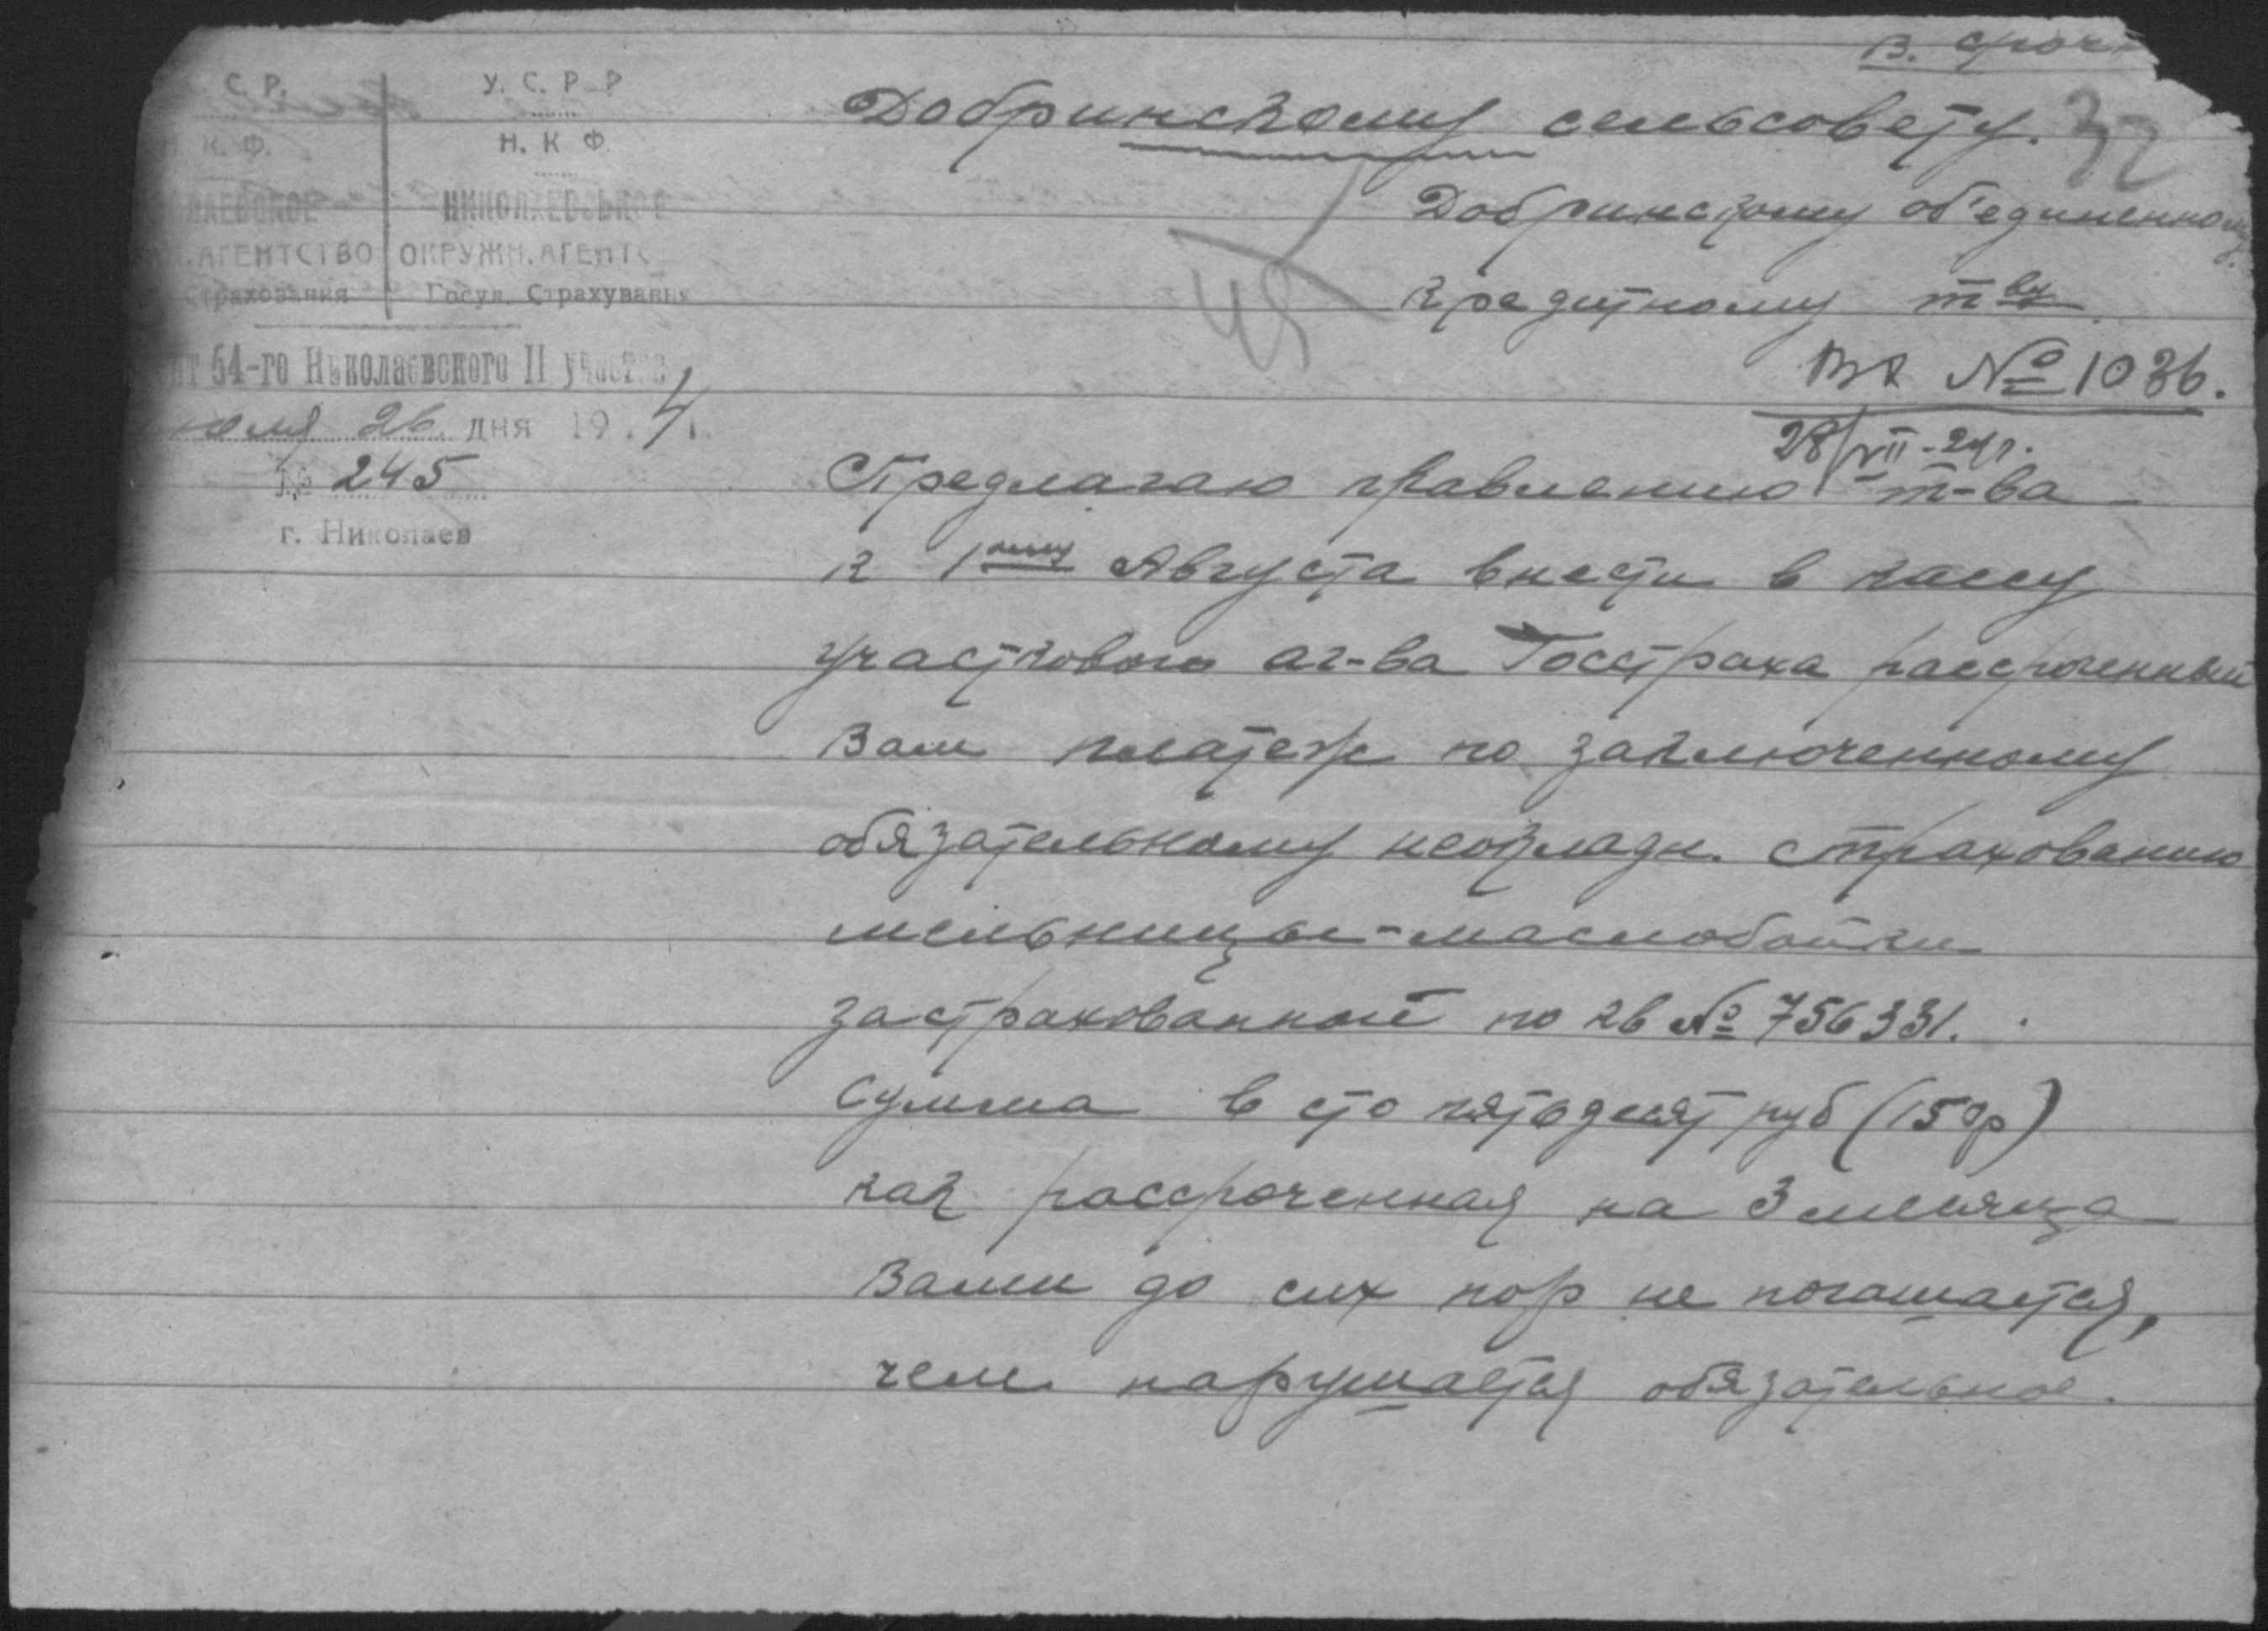 В. сроч
Добринскому сельсовету.
32
Добринскому об'единенному
45
кредитному т-ву
Вх № 1036.
28/VII-24г.
С. Р.
К. Ф.
ЛАЕВСКОЕ
АГЕНТСТВО
Страхования
У. С. Р Р
Н. К Ф.
НИКОЛАЕВСЬКОЕ
ОКРУЖН. АГЕНТС
Госуд. Страхування
нт 54-го Николаевского II участка
юля 26 дня 19 4 г.
№ 245
г. Николаев
Предлагаю правлению т-ва
к 1ому Августа внести в кассу
участкового аг-ва Госстраха рассроченный
Вам платеж по заключенному
обязательному неокладн. страхованию
мельницы-маслобойки
застрахованной по кв № 756331.
Сумма в сто пятьдесят руб (150р)
как рассроченная на 3 месяца
Вами до сих пор не погашается,
чем нарушается обязательное.